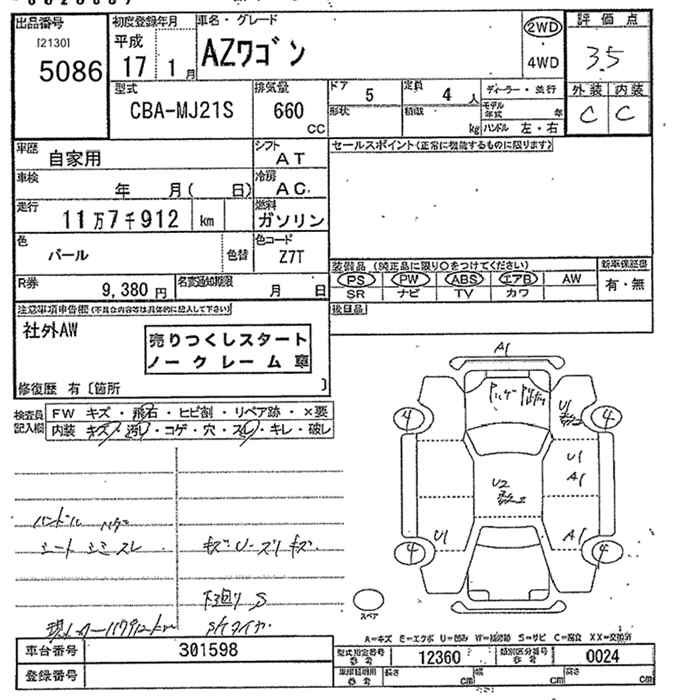 出品番号 初度登録年月 車名・グレード 2WD 評価点
[2130] 平成 AZワゴン 3.5
5086 17 1月 4WD 外装 内装
型式 排気量 ドア 5 定員 4人 ディーラー・並行 C C
CBA-MJ21S 660 形状 積載 モデル年式 年
CC kg ハンドル 左・右
車歴 自家用 シフト AT セールスポイント(正常に機能するものに限ります)
車検 年 月( 日) 冷房 AC
走行 11万7千912 km 燃料 ガソリン
色 パール 色替 色コード Z7T
装備品(純正品に限り○をつけてください) 新車保証書
R券 9,380円 名変通知期限 月 日 PS PW ABS エアB AW 有・無
SR ナビ TV カワ
注意事項申告欄(不具合内容等は具体的に記入して下さい) 後日品
社外AW
売りつくしスタート
ノークレーム車
修復歴 有〔箇所 〕
A1
検査員記入欄 FW キズ・飛石・ヒビ割・リペア跡・×要
内装 キズ・汚れ・コゲ・穴・スレ・キレ・破レ
4 U1 4
U1
A1
U2
ハンドル
シート シミ スレ キズ・U・スリキズ
U1 A1
4 4
下廻り S
スペア
A=キズ E=エクボ U=凹み W=補修跡 S=サビ C=腐食 XX=交換済
車台番号 301598 型式指定番号 参考 12360 類別区分番号 参考 0024
登録番号 車庫証明用 参考 長さ cm 幅 cm 高さ cm